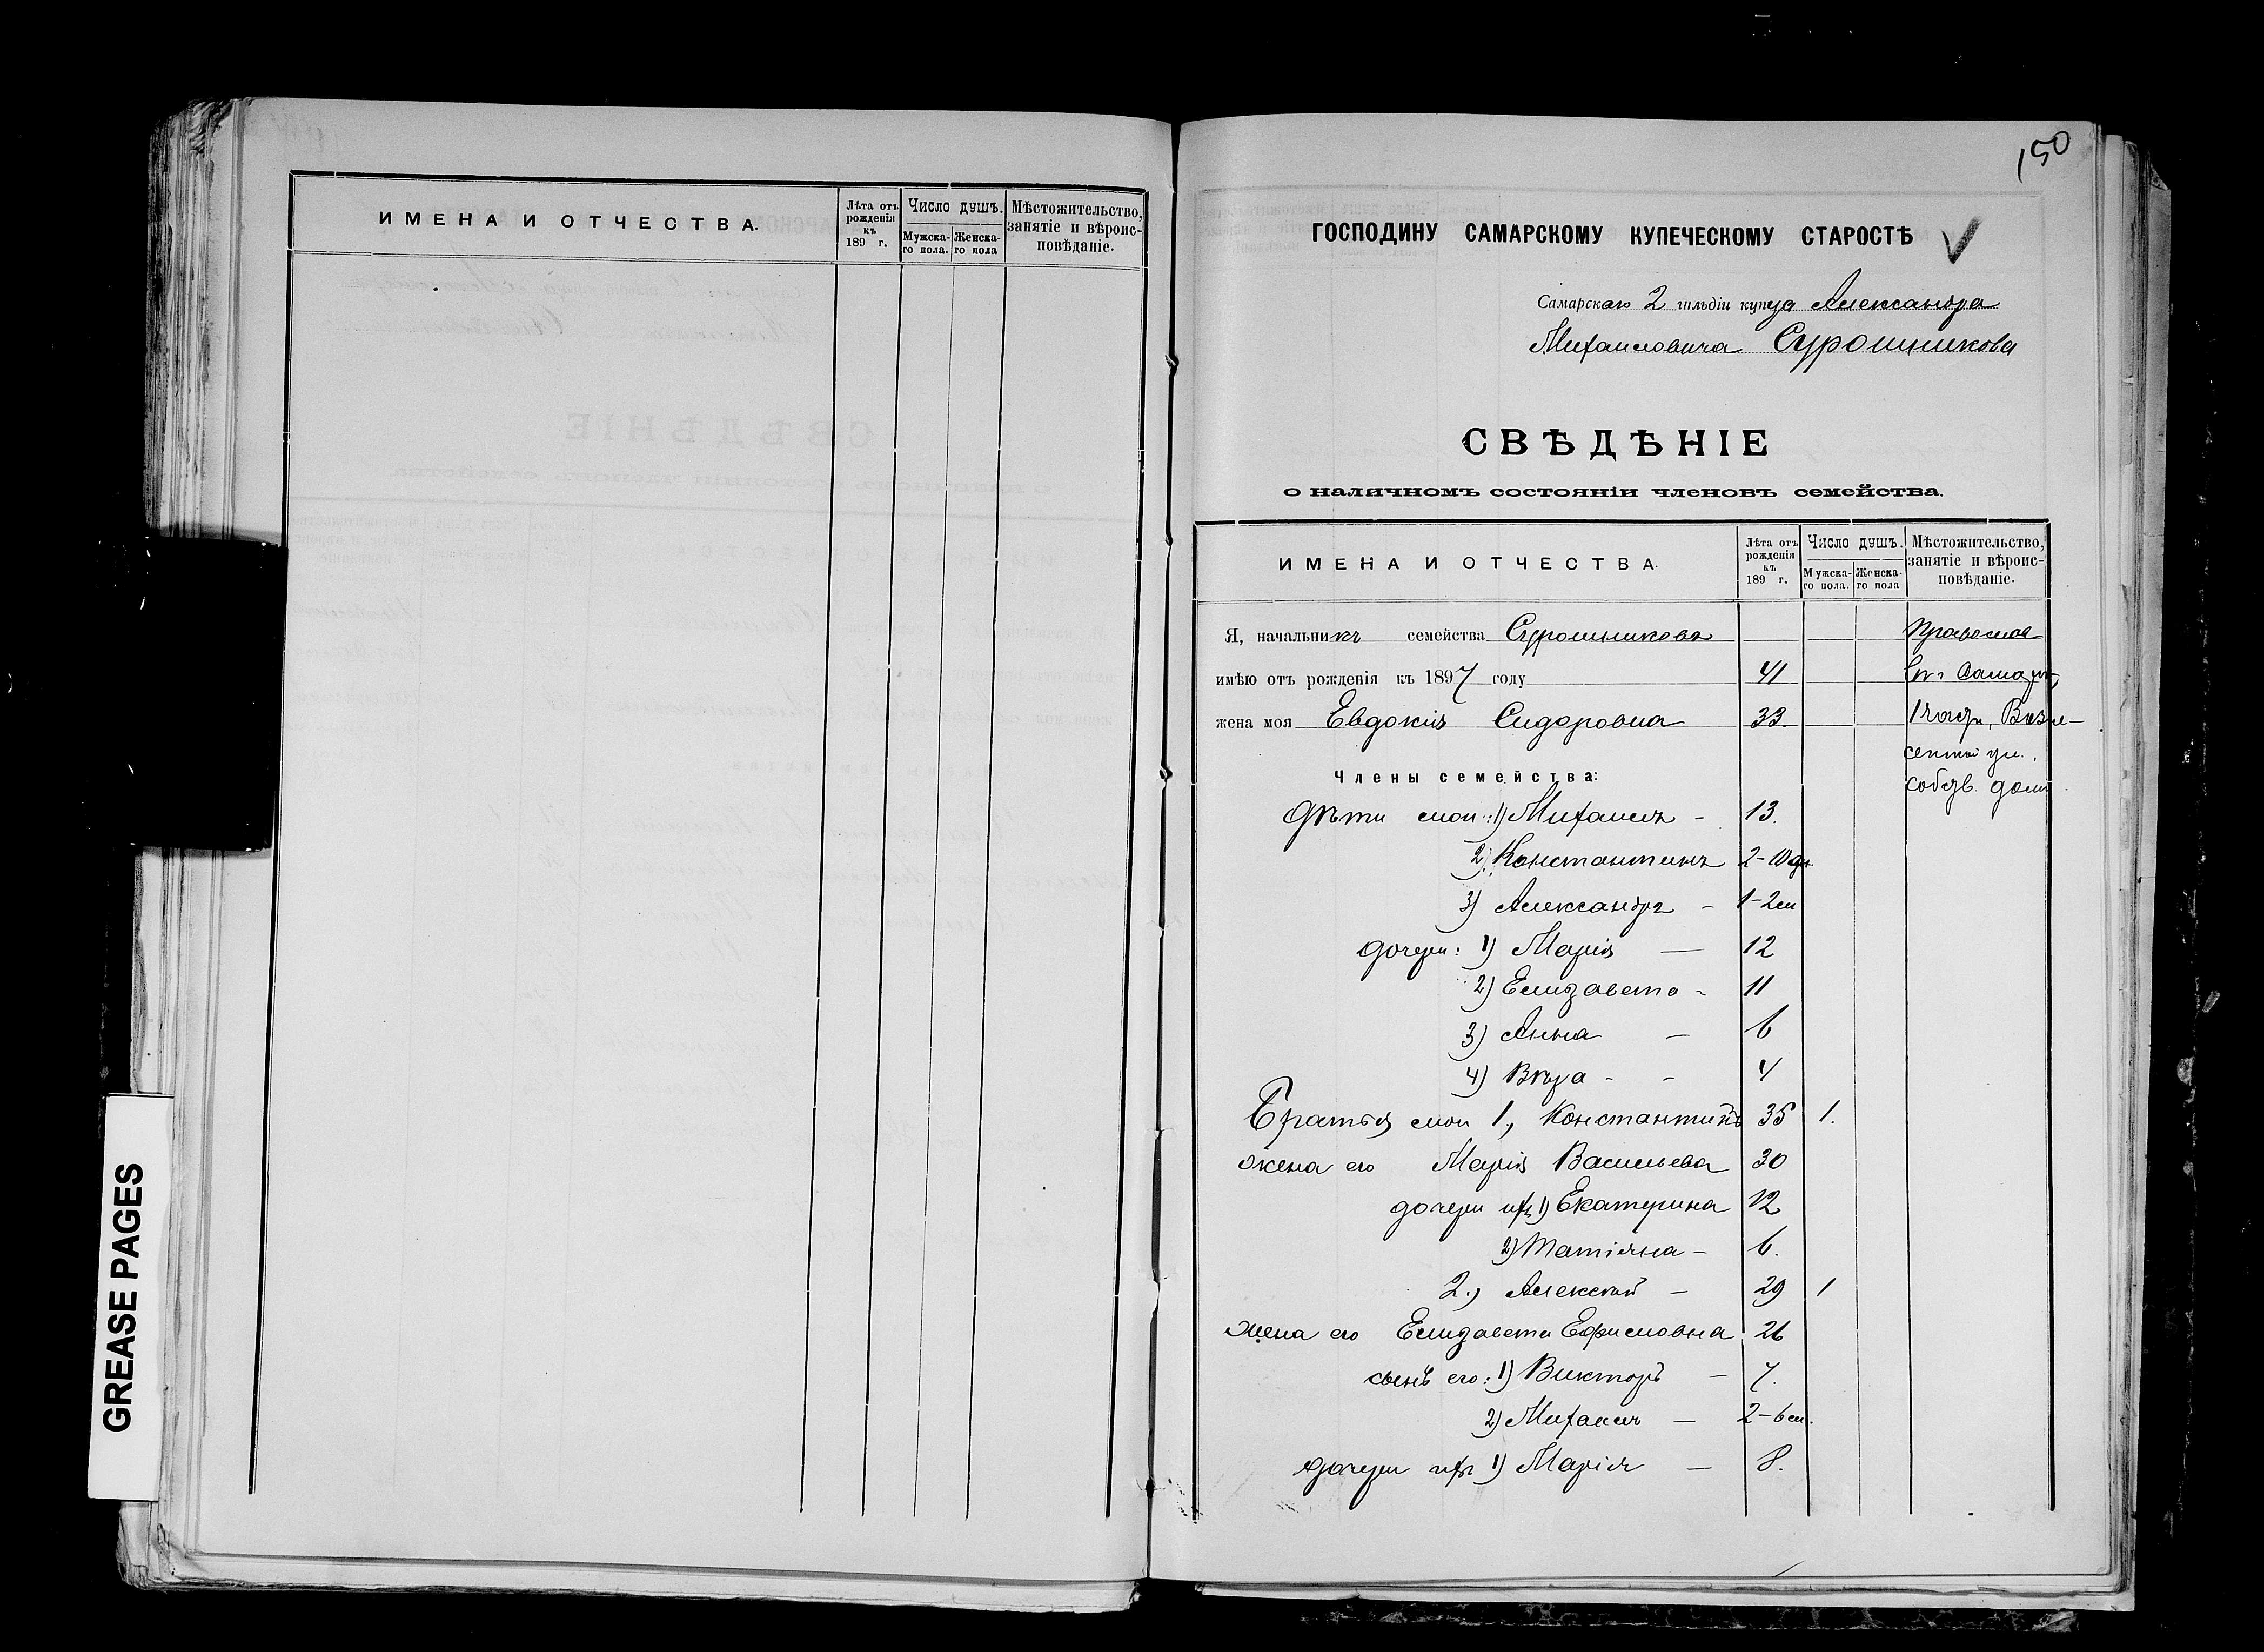 ИМЕНА И ОТЧЕСТВА.
Лѣта отъ рожденія къ 189 г.
Число душъ.
Мужска-го пола.
Женска-го пола
Мѣстожительство, занятіе и вѣроис-повѣданіе.
150
ГОСПОДИНУ САМАРСКОМУ КУПЕЧЕСКОМУ СТАРОСТѢ
Самарскаго 2 гильдіи купца Александра
Михаиловича Сурошникова
СВѢДѢНІЕ
о наличномъ состояніи членовъ семейства.
ИМЕНА И ОТЧЕСТВА.
Лѣта отъ рожденія къ 189 г.
Число душъ.
Мужска-го пола.
Женска-го пола
Мѣстожительство, занятіе и вѣроис-повѣданіе.
Я, начальникъ семейства Сурошниковъ Православ
имѣю отъ рожденія къ 1897 году 41 Въ г Самарѣ,
жена моя Евдокія Сидоровна 33. 1 части, Возне-
сенской ул.
Члены семейства:
собств. домъ
Дѣти мои: 1) Михаилъ - 13.
2) Константинъ 2-10 дн.
3) Александръ - 1-2 м
дочери: 1) Марія — 12
2) Елизавета - 11
3) Анна — 6
4) Вѣра - - 4
Братья мои 1, Константинъ 35 1.
жена его Марія Васильева 30
дочери ихъ 1) Екатерина 12
2) Татіяна - 6.
2.) Алексѣй - 29 1
жена его Елизавета Ефимовна 26
сынъ его: 1) Викторъ — 7.
2) Михаилъ — 2-6 м.
дочери ихъ 1) Марія — 8.
GREASE PAGES